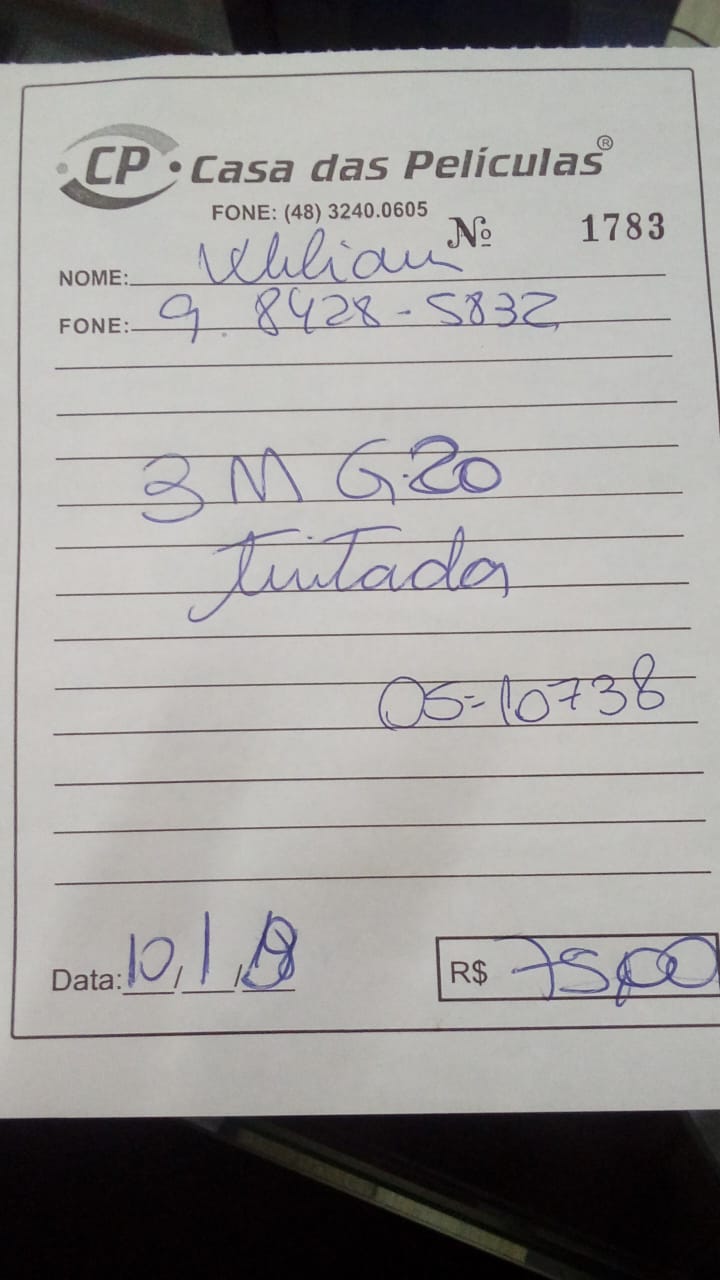 CP • Casa das Películas®
FONE: (48) 3240.0605
Nº 1783
NOME: Willian
FONE: 9. 8428-5832
3M G.20
tintada
OS=10738
Data: 10/1/
R$ 75,00